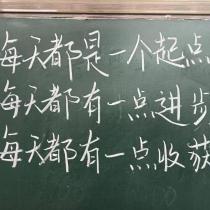 每天都是一个起点
每天都有一点进步
每天都有一点收获